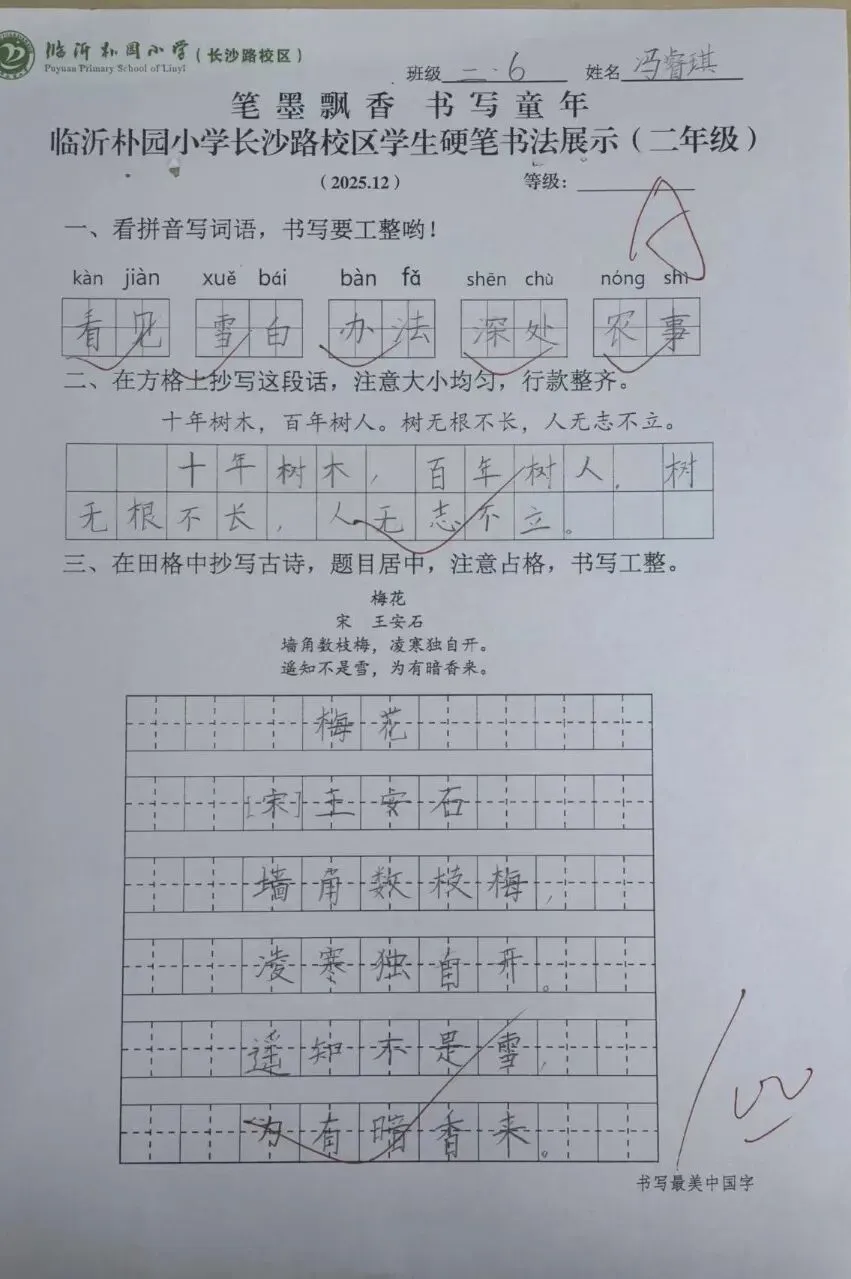 临沂朴园小学（长沙路校区）
Puyuan Primary School of Linyi
班级 二.6 姓名 冯睿琪
笔墨飘香 书写童年
临沂朴园小学长沙路校区学生硬笔书法展示（二年级）
（2025.12） 等级： A
一、看拼音写词语，书写要工整哟！
kàn jiàn xuě bái bàn fǎ shēn chù nóng shì
看见 雪白 办法 深处 农事
二、在方格上抄写这段话，注意大小均匀，行款整齐。
十年树木，百年树人。树无根不长，人无志不立。
十年树木，百年树人．树
无根不长，人无志不立。
三、在田格中抄写古诗，题目居中，注意占格，书写工整。
梅花
宋 王安石
墙角数枝梅，凌寒独自开。
遥知不是雪，为有暗香来。
梅花
[宋]王安石
墙角数枝梅，
凌寒独自开。
遥知不是雪，
为有暗香来。
书写最美中国字